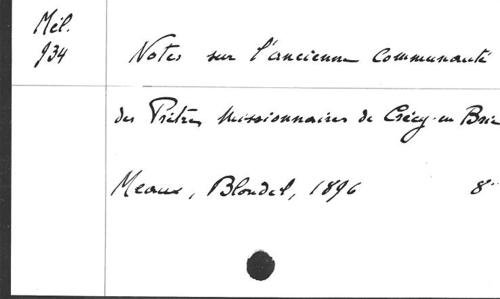 Mél.
934
Notes sur l'ancienne Communauté
des Prêtres Missionnaires de Crécy-en Brie
Meaux, Blondel, 1896 8°